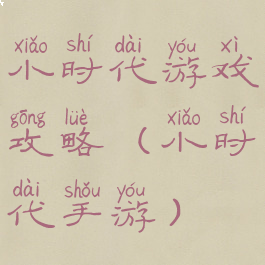 xiǎo shí dài yóu xì
小时代游戏
gōng lüè xiǎo shí
攻略（小时
dài shǒu yóu
代手游）